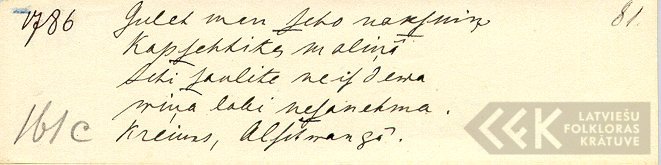 1786 Gulet man scho naksning 81.
Kapsehtikas maliņā
Schi saulite neisdewa
wiņa labi nesanehma.
161c Kreiuns, Alschwangā.
LATVIEŠU
FOLKLORAS
KRĀTUVE